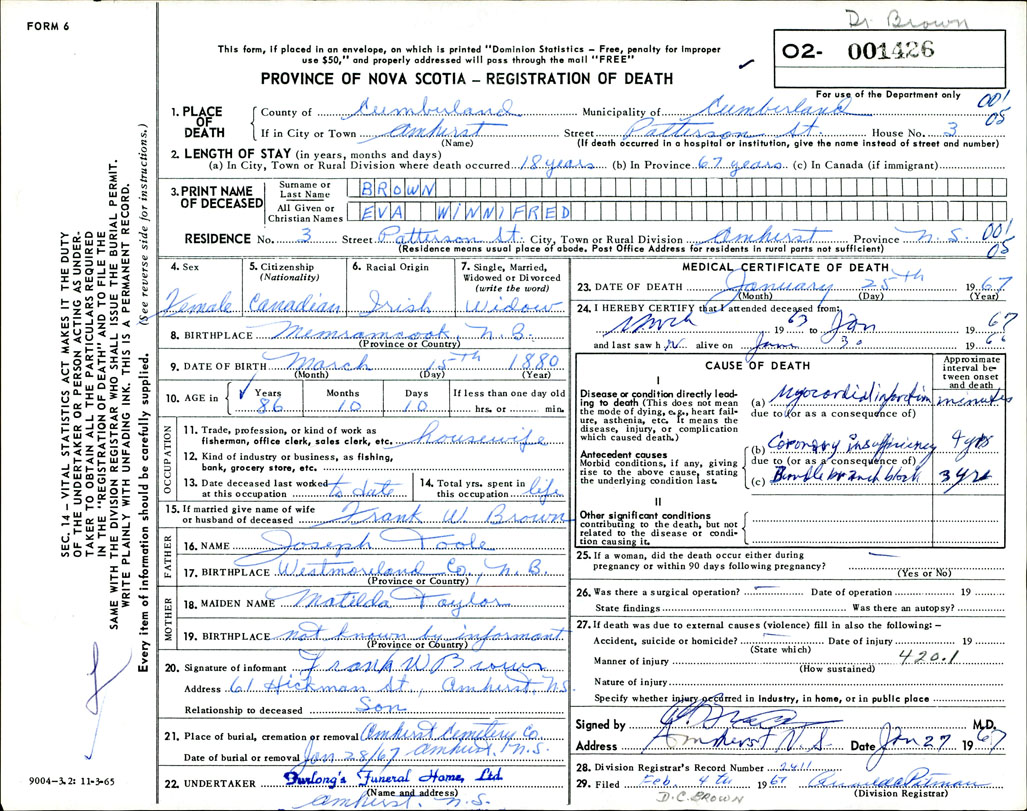 Dr Brown
FORM 6
This form, if placed in an envelope, on which is printed "Dominion Statistics – Free, penalty for improper
use $50," and properly addressed will pass through the mail "FREE"
✓
O2- 001426
PROVINCE OF NOVA SCOTIA – REGISTRATION OF DEATH
For use of the Department only
001
05
1. PLACE OF DEATH
County of Cumberland Municipality of Cumberland
If in City or Town Amherst Street Patterson St. House No. 3
(Name) (If death occurred in a hospital or institution, give the name instead of street and number)
2. LENGTH OF STAY (in years, months and days)
(a) In City, Town or Rural Division where death occurred 18 years (b) In Province 67 years (c) In Canada (if immigrant)
3. PRINT NAME OF DECEASED
Surname or Last Name BROWN
All Given or Christian Names EVA WINNIFRED
RESIDENCE No. 3 Street Patterson St. City, Town or Rural Division Amherst Province N.S. 001
05
(Residence means usual place of abode. Post Office Address for residents in rural parts not sufficient)
4. Sex
Female
5. Citizenship
(Nationality)
Canadian
6. Racial Origin
Irish
7. Single, Married,
Widowed or Divorced
(write the word)
Widow
8. BIRTHPLACE Memramcook, N.B.
(Province or Country)
9. DATE OF BIRTH March 15th 1880
(Month) (Day) (Year)
10. AGE in ✓ Years Months Days If less than one day old
86 10 10 hrs. or min.
OCCUPATION
11. Trade, profession, or kind of work as
fisherman, office clerk, sales clerk, etc. housewife
12. Kind of industry or business, as fishing,
bank, grocery store, etc.
13. Date deceased last worked
at this occupation to date
14. Total yrs. spent in
this occupation life
15. If married give name of wife
or husband of deceased Frank W. Brown
FATHER
16. NAME Joseph Toole
17. BIRTHPLACE Westmoreland Co., N.B.
(Province or Country)
MOTHER
18. MAIDEN NAME Matilda Taylor
19. BIRTHPLACE not known by informant
(Province or Country)
20. Signature of informant Frank W Brown
Address 61 Hickman St., Amherst, N.S.
Relationship to deceased Son
21. Place of burial, cremation or removal Amherst Cemetery Co.
Amherst, N.S.
Date of burial or removal Jan 28/67
22. UNDERTAKER Furlong's Funeral Home, Ltd.
(Name and address)
Amherst, N.S.
MEDICAL CERTIFICATE OF DEATH
23. DATE OF DEATH January 25th 1967
(Month) (Day) (Year)
24. I HEREBY CERTIFY that I attended deceased from:
March 1963 to Jan 1967
and last saw her alive on 30 196
CAUSE OF DEATH
Approximate
interval be-
tween onset
and death
I
Disease or condition directly lead-
ing to death (This does not mean
the mode of dying, e.g., heart fail-
ure, asthenia, etc. It means the
disease, injury, or complication
which caused death.)
(a) Myocardial infarction minutes
due to (or as a consequence of)
Antecedent causes
Morbid conditions, if any, giving
rise to the above cause, stating
the underlying condition last.
(b) Coronary Insufficiency yrs
due to (or as a consequence of)
(c) Bundle branch block 3 yrs
II
Other significant conditions
contributing to the death, but not
related to the disease or condi-
tion causing it.
25. If a woman, did the death occur either during
pregnancy or within 90 days following pregnancy? —
(Yes or No)
26. Was there a surgical operation? – Date of operation 19
State findings Was there an autopsy?
27. If death was due to external causes (violence) fill in also the following: –
Accident, suicide or homicide? Date of injury 19
(State which)
Manner of injury 420.1
(How sustained)
Nature of injury
Specify whether injury occurred in industry, in home, or in public place
Signed by M.D.
Address Amherst N.S. Date Jan 27 1967
28. Division Registrar's Record Number 2411
29. Filed Feb. 4th 1967
(Division Registrar)
D.C. BROWN
SEC. 14 – VITAL STATISTICS ACT MAKES IT THE DUTY
OF THE UNDERTAKER OR PERSON ACTING AS UNDER-
TAKER TO OBTAIN ALL THE PARTICULARS REQUIRED
IN THE "REGISTRATION OF DEATH" AND TO FILE THE
SAME WITH THE DIVISION REGISTRAR WHO SHALL ISSUE THE BURIAL PERMIT.
WRITE PLAINLY WITH UNFADING INK. THIS IS A PERMANENT RECORD.
Every item of information should be carefully supplied. (See reverse side for instructions.)
9004–3.2: 11-3-65